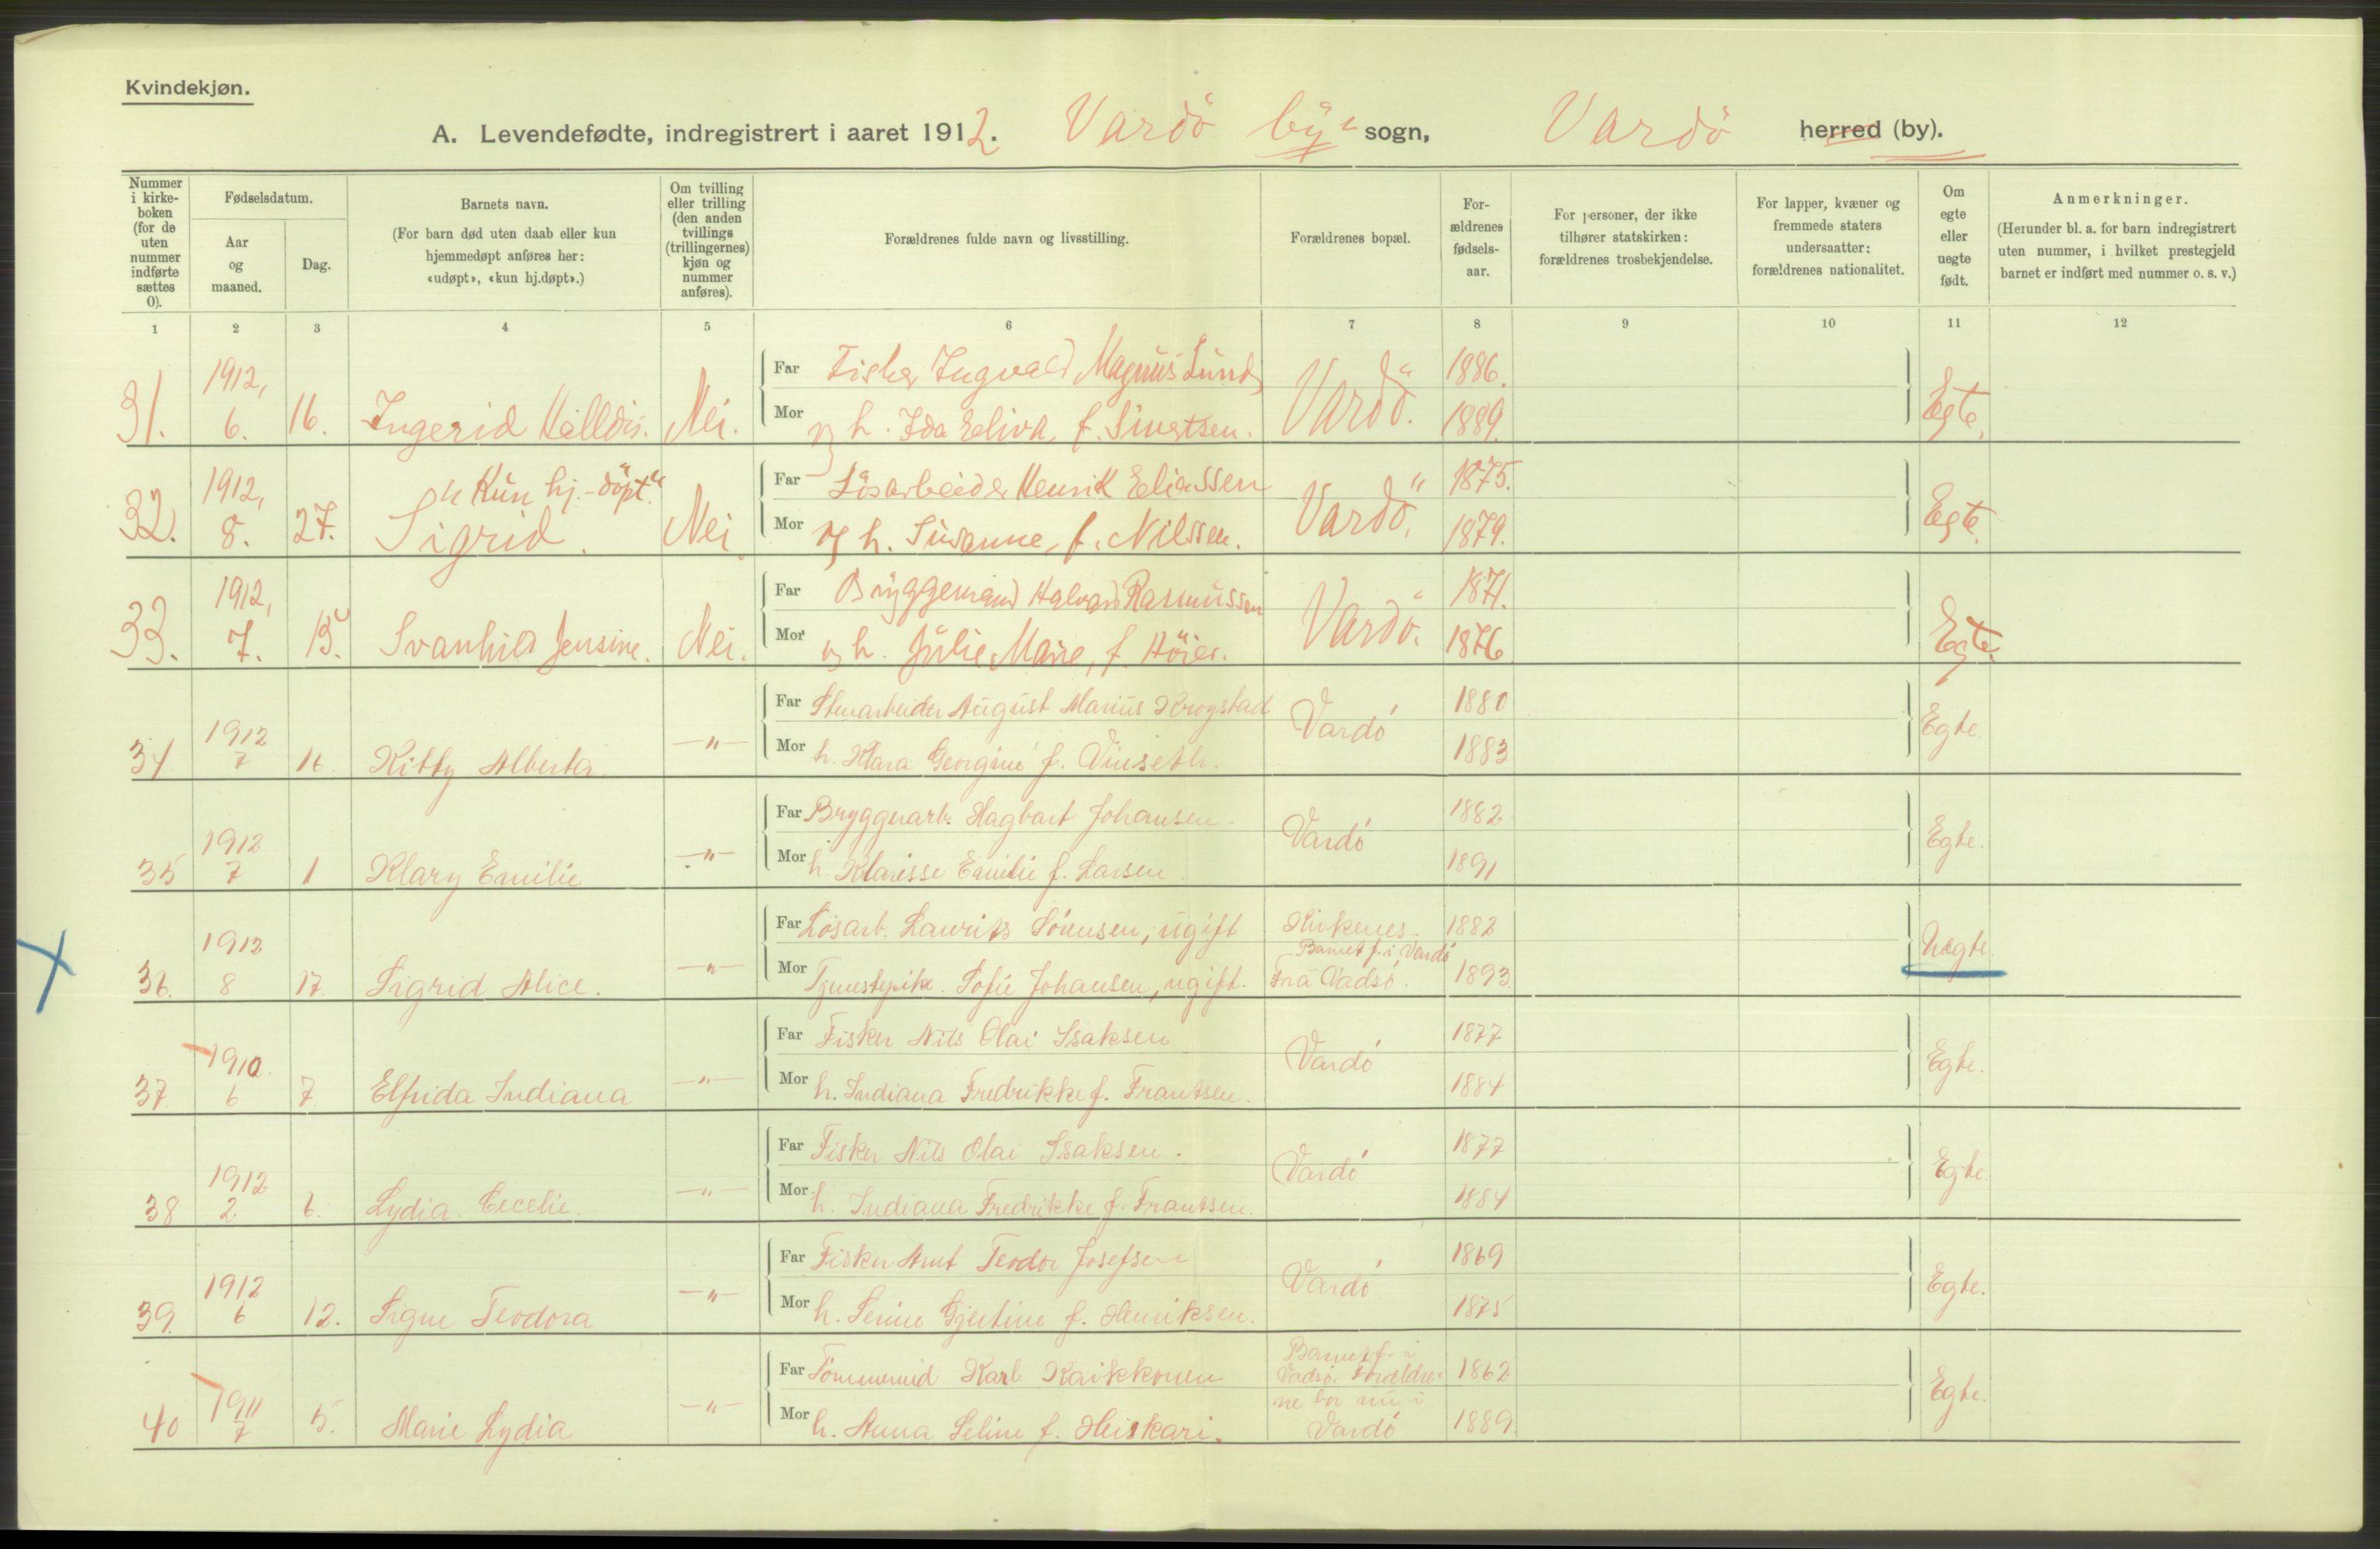 Kvindekjøn.
A. Levendefødte, indregistrert i aaret 1912. Vardö by's sogn, Vardö herred (by).
Nummer i kirke-boken (for de uten nummer indførte sættes 0).
Fødselsdatum.
Aar og maaned.
Dag.
Barnets navn.
(For barn død uten daab eller kun hjemmedøpt anføres her: «udøpt», «kun hj.døpt».)
Om tvilling eller trilling (den anden tvillings (trillingernes) kjøn og nummer anføres).
Forældrenes fulde navn og livsstilling.
Forældrenes bopæl.
For-ældrenes fødsels-aar.
For personer, der ikke tilhører statskirken: forældrenes trosbekjendelse.
For lapper, kvæner og fremmede staters undersaatter: forældrenes nationalitet.
Om egte eller uegte født.
Anmerkninger.
(Herunder bl. a. for barn indregistrert uten nummer, i hvilket prestegjeld barnet er indført med nummer o. s. v.)
1 2 3 4 5 6 7 8 9 10 11 12
31. 1912, 6. 16. Ingerid Halldis. Nei.
Far Fisker Ingvald Magnus Lund Vardö. 1886.
Mor og h. Ida Eliva, f. Sivertsen. 1889. Egte.
32. 1912, 8. 27. "Kun hj.-döpt" Sigrid. Nei.
Far Lösarbeider Henrik Eliassen Vardö. 1875.
Mor og h. Susanne, f. Nilssen. 1879. Egte.
33. 1912, 7. 15. Svanhild Jensine. Nei.
Far Bryggemand Halvard Rasmussen Vardö. 1871.
Mor og h. Julie Marie, f. Höier. 1876 Egte.
34 1912 7 16. Kitty Alberta —"—
Far Stenarbeider August Marius Krogstad Vardö 1880
Mor h. Klara Georgine f. Vinseth. 1883 Egte.
35 1912 7 1 Klary Emilie —"—
Far Bryggearb. Hagbart Johansen. Vardö 1882
Mor h. Klarisse Emilie f. Larsen. 1891 Egte.
36. 1912 8 17. Sigrid Alice. —"—
Far Løsarb. Laurits Sörensen, ugift Kirkenes. 1882
Barnet f. i Vardö
Mor Tjenestepike. Sofie Johansen, ugift. Fra Vadsö. 1893. Uegte
37. 1910. 6 7. Elfrida Indiana —"—
Far Fisker Nils Olai Isaksen Vardö 1877
Mor h. Indiana Fredrikke f. Frantsen. 1884 Egte.
38 1912 2 6. Lydia Cecelie. —"—
Far Fisker Nils Olai Isaksen. Vardö 1877
Mor h. Indiana Fredrikke f. Frantsen. 1884 Egte.
39. 1912 6 12. Signe Teodora —"—
Far Fisker Arnt Teodor Josefsen Vardö 1869
Mor h. Serine Gjertine f. Henriksen. 1875 Egte.
40 1911 7 5. Marie Lydia —"—
Far Tömmermd Karl Kaikkonen Barnet f. i Vadsö. Foreldre- 1862
ne bor nu i
Mor h. Anna Seline f. Heiskari. Vardö 1889. Egte.